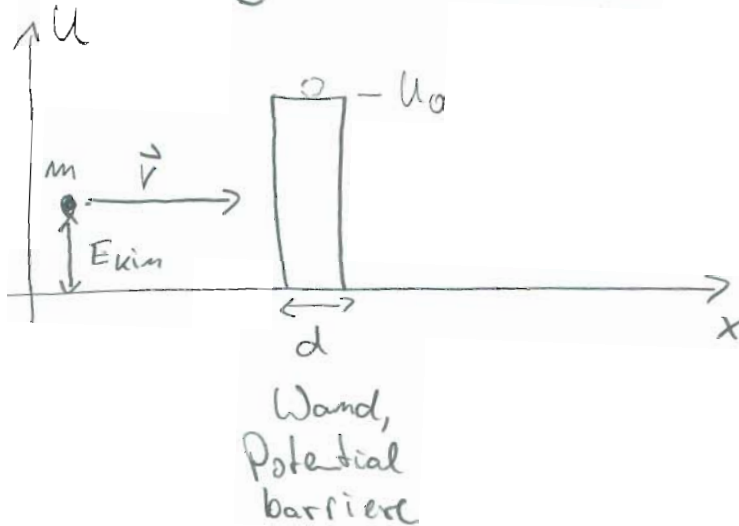 U
U₀
m
v⃗
E_kin
x
d
Wand,
Potential
barriere